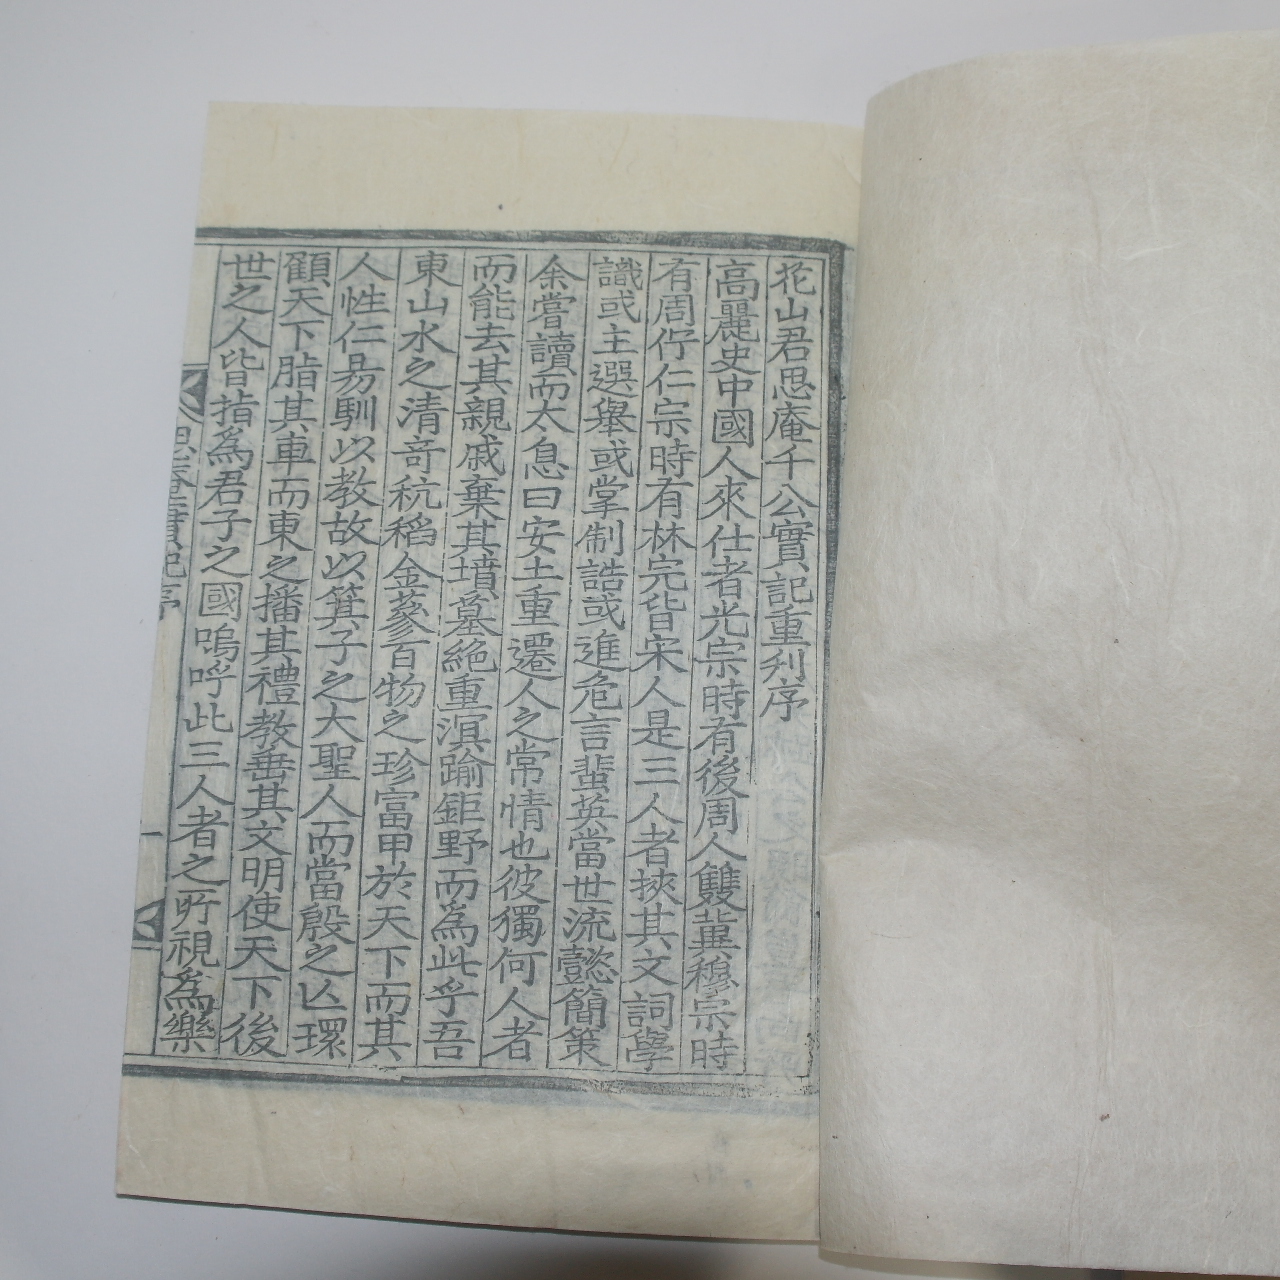 花山君思庵千公實記重刋序
高麗史中國人來仕者光宗時有後周人雙冀穆宗時
有周佇仁宗時有林完皆宋人是三人者挾其文詞學
識或主選舉或掌制誥或進危言蜚英當世流懿簡策
余嘗讀而太息曰安土重遷人之常情也彼獨何人者
而能去其親戚棄其墳墓絶重溟踰鉅野而爲此乎吾
東山水之清竒秔稻金蔘百物之珍富甲於天下而其
人性仁昜馴以教故以箕子之大聖人而當殷之亾環
顧天下脂其車而東之播其禮教垂其文明使天下後
世之人皆指爲君子之國嗚呼此三人者之所視爲樂
思庵實記序
一